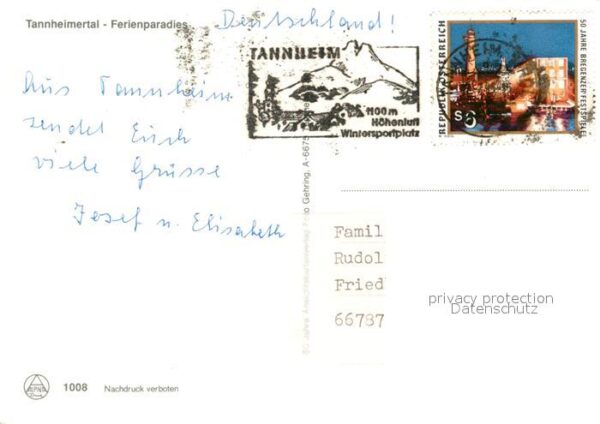 Tannheimertal - Ferienparadies
Deutschland!
TANNHEIM
1100 m
Höhenluft
Wintersportplatz
REPUBLIK ÖSTERREICH
50 JAHRE BREGENZER FESTSPIELE
S 6
Aus Tannheim
sendet Euch
viele Grüsse
Josef u. Elisabeth
Gehring, A-6675
Famil
Rudol
Fried
66787
privacy protection
Datenschutz
1008
Nachdruck verboten